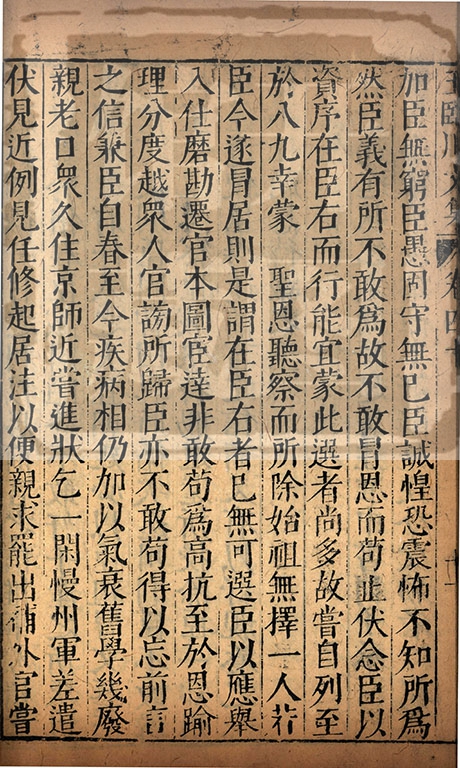 王臨川文集 卷四十
加臣無窮臣愚固守無已臣誠惶恐震怖不知所爲
然臣義有所不敢爲故不敢冒恩而苟止伏念臣以
資序在臣右而行能宜蒙此選者尚多故嘗自列至
於八九幸蒙 聖恩聽察而所除始祖無擇一人若
臣今遂冒居則是謂在臣右者已無可選臣以應舉
入仕磨勘遷官本圖宦達非敢苟爲高抗至於恩踰
理分度越衆人官謗所歸臣亦不敢苟得以忘前言
之信兼臣自春至今疾病相仍加以氣衰舊學幾廢
親老口衆久住京師近嘗進狀乞一閑慢州軍差遣
伏見近例見任修起居注以便親求罷出補外官嘗